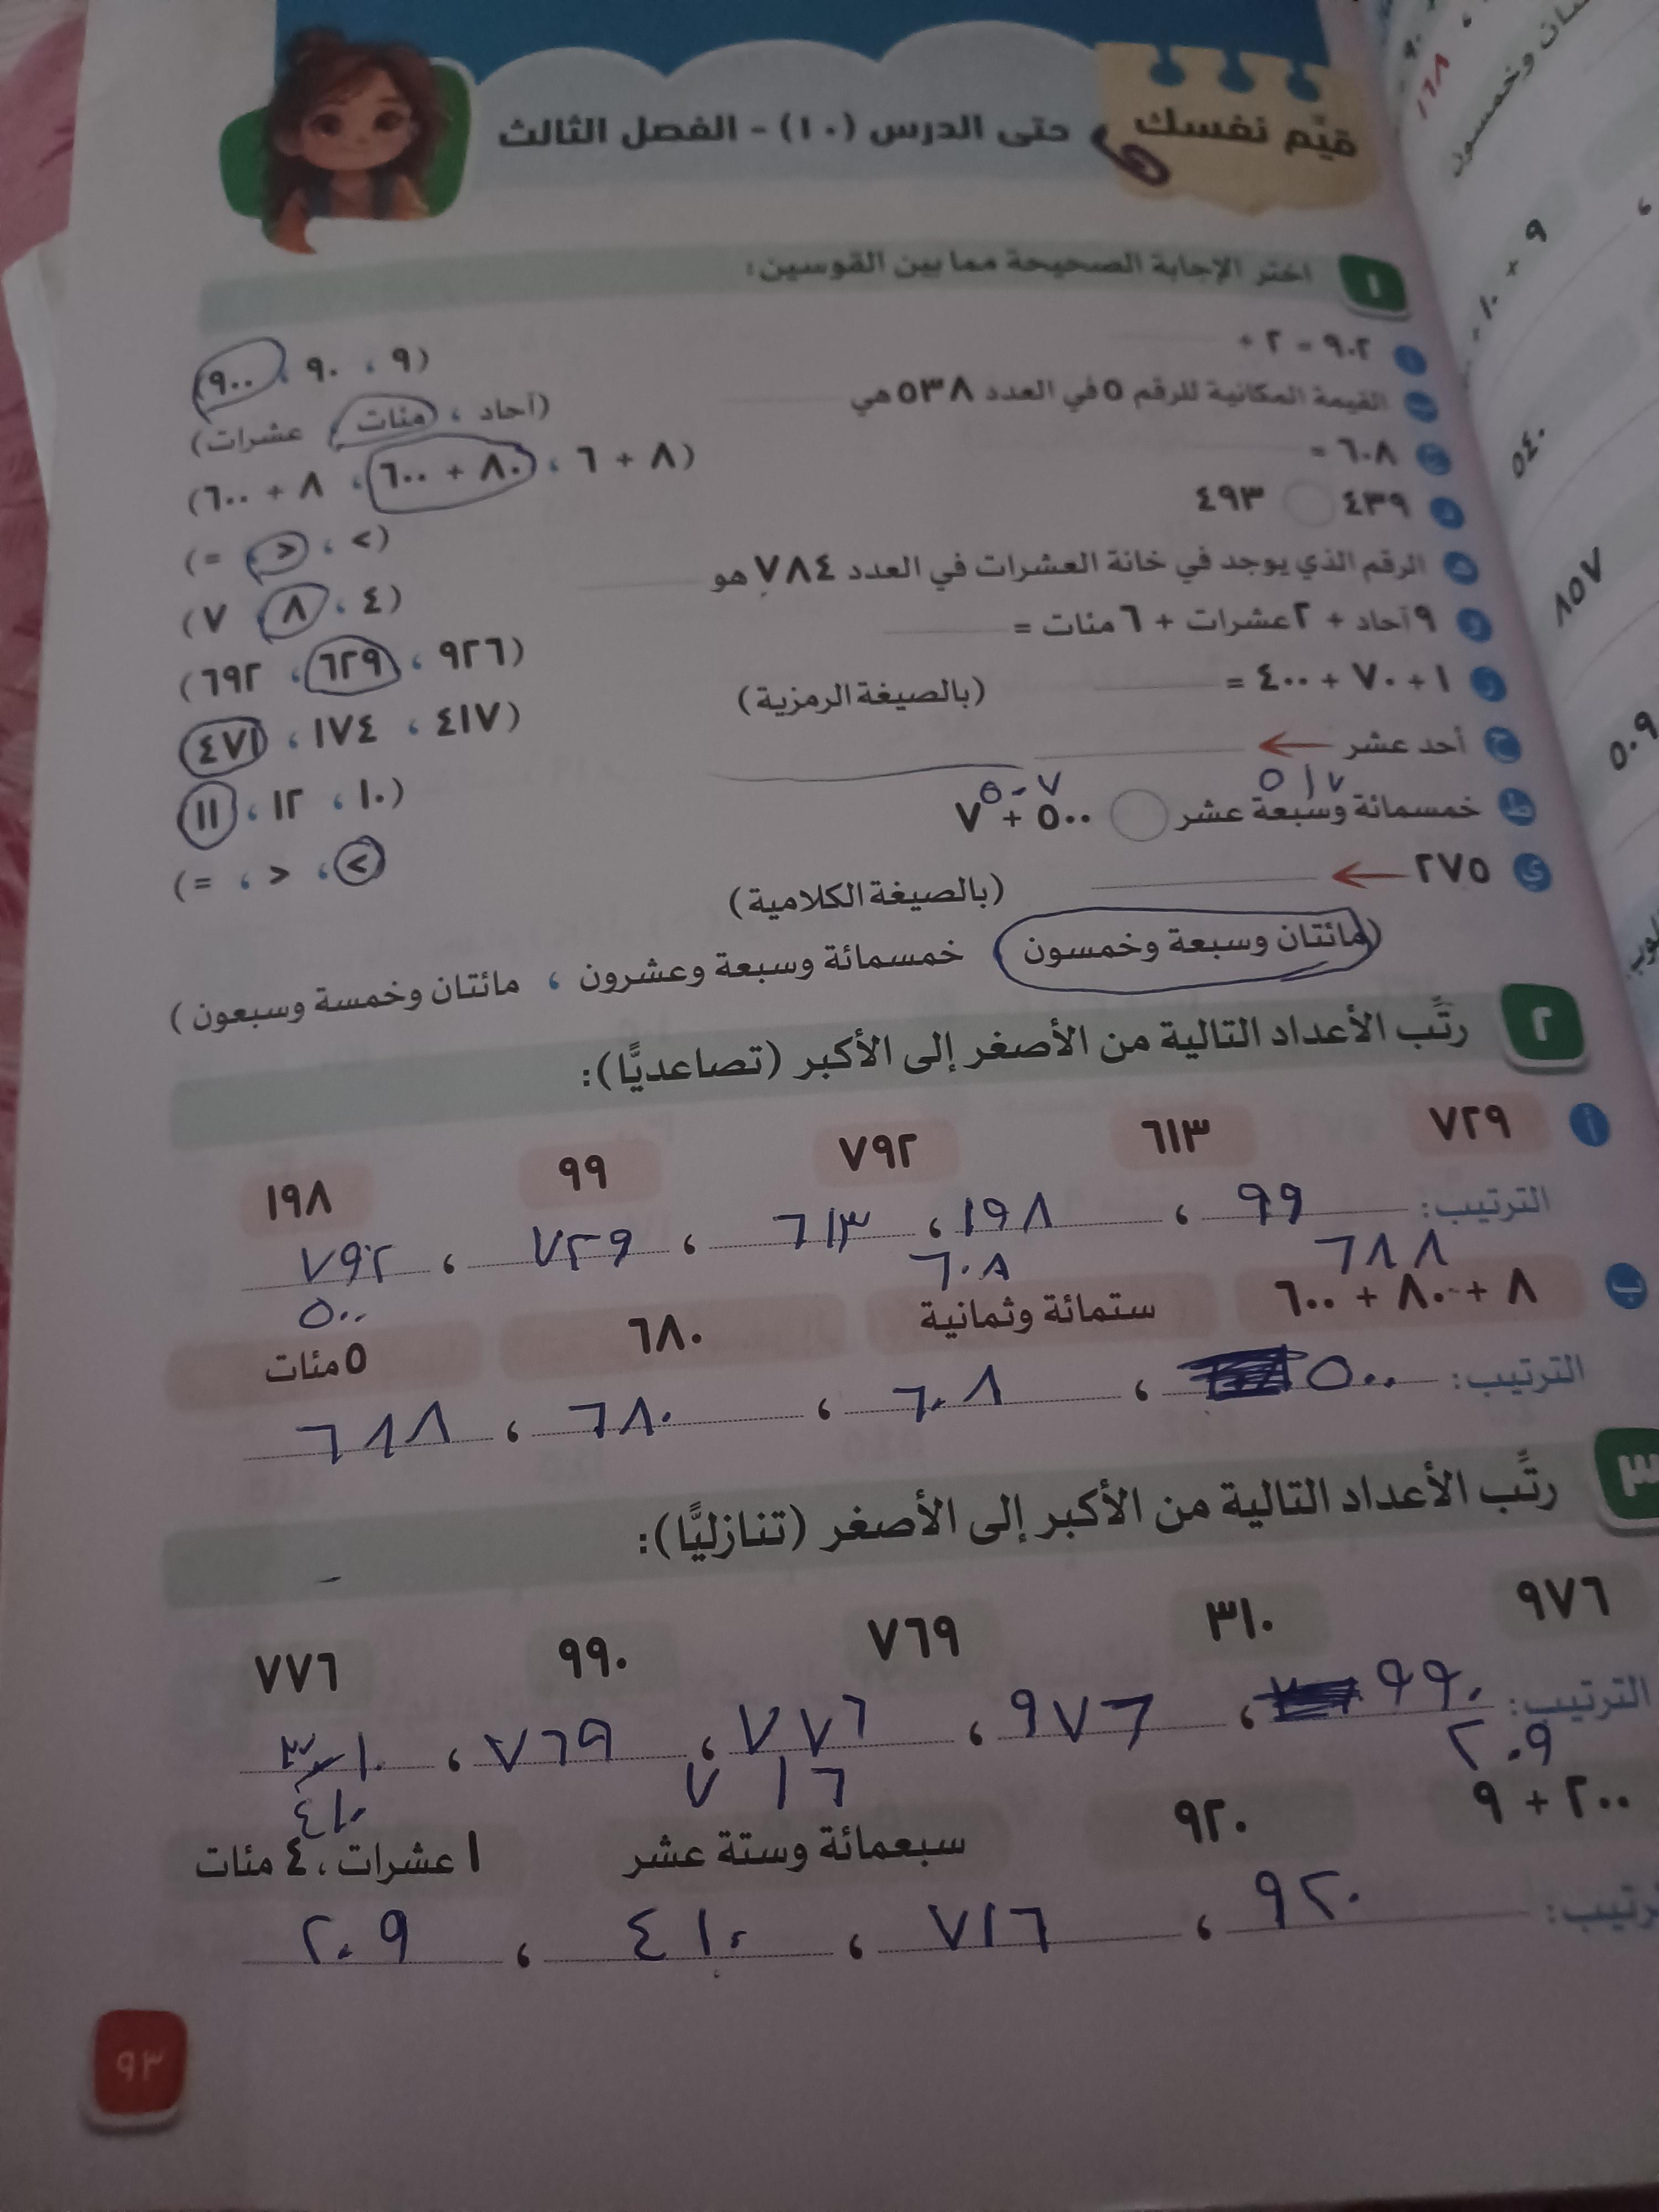 قيِّم نفسك حتى الدرس (١٠) - الفصل الثالث
١ اختر الإجابة الصحيحة مما بين القوسين:
أ ٩٠٢ = ٢ + (٩ ، ٩٠ ، ٩٠٠)
ب القيمة المكانية للرقم ٥ في العدد ٥٣٨ هي (آحاد ، مئات ، عشرات)
ج ٦٠٨ = (٨ + ٦ ، ٨٠ + ٦٠٠ ، ٨ + ٦٠٠)
د ٤٣٩ ٤٩٣ (> ، < ، =)
هـ الرقم الذي يوجد في خانة العشرات في العدد ٧٨٤ هو (٤ ، ٨ ، ٧)
و ٩ آحاد + ٢ عشرات + ٦ مئات = (٩٢٦ ، ٦٢٩ ، ٦٩٢)
ز ١ + ٧٠ + ٤٠٠ = (بالصيغة الرمزية) (٤١٧ ، ١٧٤ ، ٤٧١)
ح أحد عشر ← (١٠ ، ١٢ ، ١١)
٥١٧ ٥٠٧
ط خمسمائة وسبعة عشر ٥٠٠ + ٧ (> ، < ، =)
ي ٢٧٥ ← (بالصيغة الكلامية)
(مائتان وسبعة وخمسون ، خمسمائة وسبعة وعشرون ، مائتان وخمسة وسبعون)
٢ رتِّب الأعداد التالية من الأصغر إلى الأكبر (تصاعديًّا):
أ ٧٢٩ ٦١٣ ٧٩٢ ٩٩ ١٩٨
الترتيب: ٩٩ ، ١٩٨ ، ٦١٣ ، ٧٢٩ ، ٧٩٢
٦٨٨ ٦٠٨ ٥٠٠
ب ٨ + ٨٠ + ٦٠٠ ستمائة وثمانية ٦٨٠ ٥ مئات
الترتيب: ٥٠٠ ، ٦٠٨ ، ٦٨٠ ، ٦٨٨
٣ رتِّب الأعداد التالية من الأكبر إلى الأصغر (تنازليًّا):
٩٧٦ ٣١٠ ٧٦٩ ٩٩٠ ٧٧٦
الترتيب: ٩٩٠ ، ٩٧٦ ، ٧٧٦ ، ٧٦٩ ، ٣١٠
٢٠٩ ٧١٦ ٤١٠
٢٠٠ + ٩ ٩٢٠ سبعمائة وستة عشر ١ عشرات ، ٤ مئات
ترتيب: ٩٢٠ ، ٧١٦ ، ٤١٠ ، ٢٠٩
٩٣
٨٦١
ان وخمسون
٩
× ١٠
٥٤٠
٨٥٧
٥٠٩